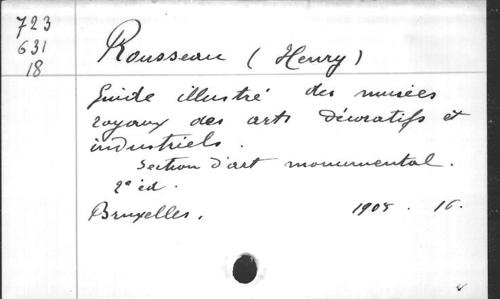 723
631
18
Rousseau (Henry)
Guide illustré des musées
royaux des arts décoratifs et
industriels.
Section d'art monumental.
2e éd.
Bruxelles, 1905. 16.